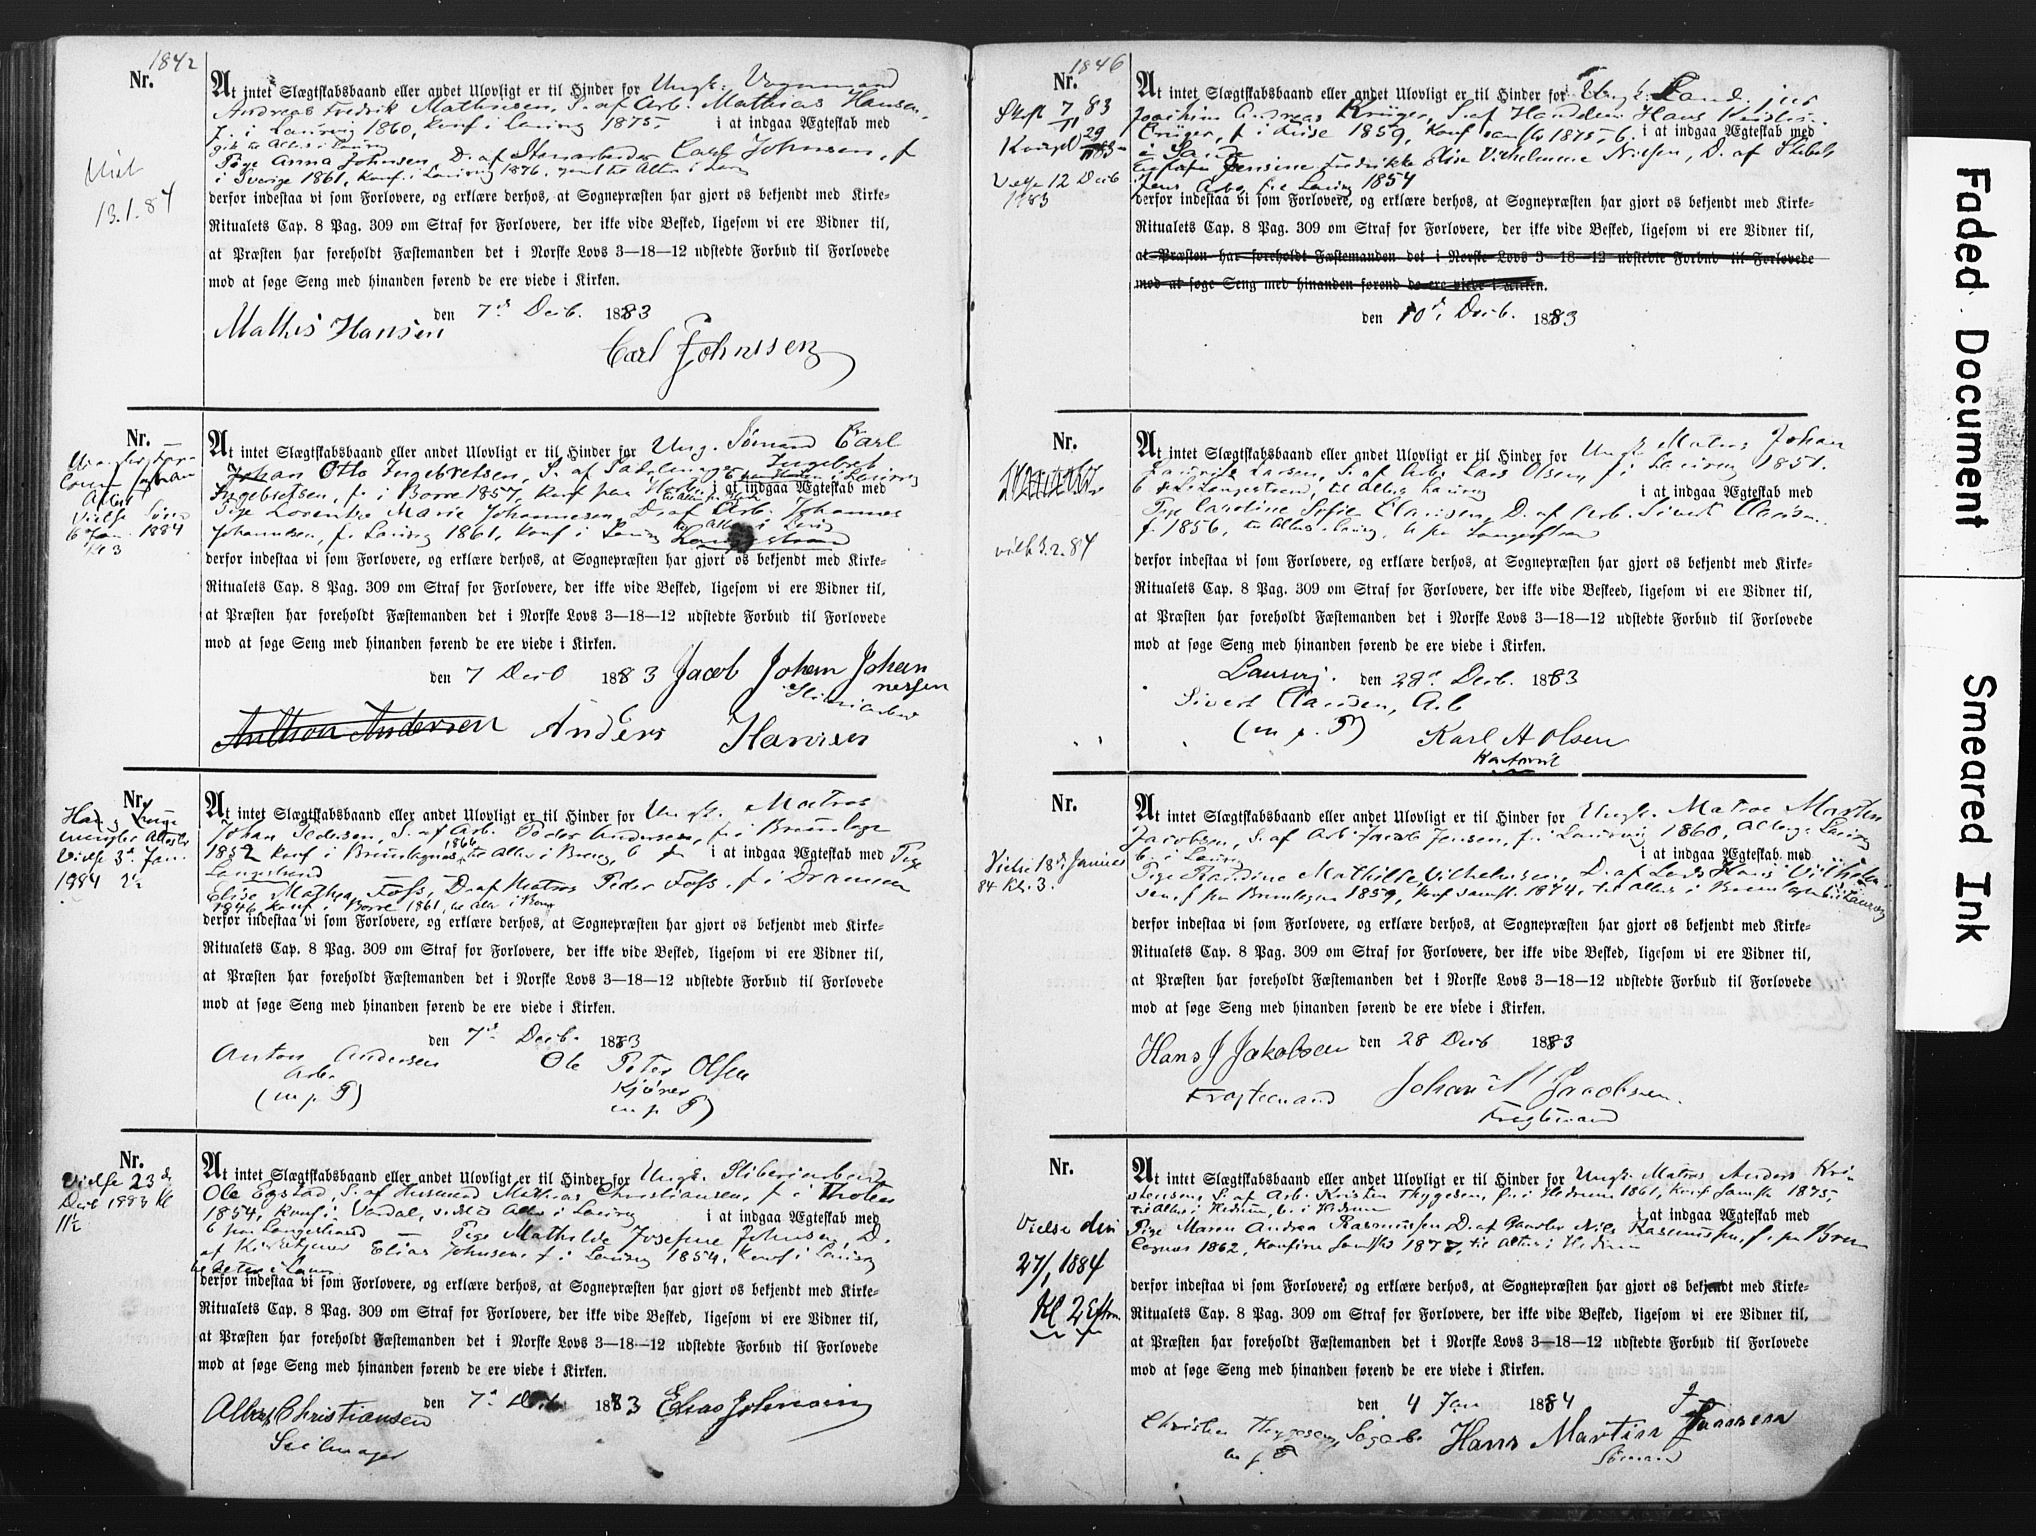 1842
Nr.
At intet Slægtskabsbaand eller andet Ulovligt er til Hinder for Ungk. Vognmand
Andreas Fredrik Mathisen, S. af Arb. Mathias Hansen,
f. i Laurvig 1860, konf i Laurvig 1875, i at indgaa Ægteskab med
Pige Anna Johnsen, D. af Stenarbeider Carl Johnsen, f
i Sverige 1861, konf. i Laurvig 1876,
Viet
13.1.84
derfor indestaa vi som Forlovere, og erklære derhos, at Sognepræsten har gjort os bekjendt med Kirke-
Ritualets Cap. 8 Pag. 309 om Straf for Forlovere, der ikke vide Besked, ligesom vi ere Vidner til,
at Præsten har foreholdt Fæstemanden det i Norske Lovs 3—18—12 udstedte Forbud til Forlovede
mod at søge Seng med hinanden førend de ere viede i Kirken.
den 7de Decb. 1883
Mathis Hansen
Carl Johnssen
Nr.
At intet Slægtskabsbaand eller andet Ulovligt er til Hinder for Ung. Sømand Carl
Johan Otto Ingebretsen, S. af Ingebret
Ingebretsen, f. i Borre 1857, konf paa i at indgaa Ægteskab med
Pige Lorentze Marie Johannesen, D. af Arb. Johannes
Johannesen, f. Laurvig 1861, konf i Laurvig Langestrand
Vielse
6 Jan. 1884
Kl 3
derfor indestaa vi som Forlovere, og erklære derhos, at Sognepræsten har gjort os bekjendt med Kirke-
Ritualets Cap. 8 Pag. 309 om Straf for Forlovere, der ikke vide Besked, ligesom vi ere Vidner til,
at Præsten har foreholdt Fæstemanden det i Norske Lovs 3—18—12 udstedte Forbud til Forlovede
mod at søge Seng med hinanden førend de ere viede i Kirken.
den 7 Decb 1883 Jacob Johan Johan
nessen
Anthon Andersen Anders Hansen
Nr.
At intet Slægtskabsbaand eller andet Ulovligt er til Hinder for Ungk. Matros
Johan Pedersen, S. af Arb. Peder Andersen, f. i Brunlagn
1852 konf i Brunlagnæs 1866 i at indgaa Ægteskab med Pige
Langestrand
Elise Mathea Foss, D. af Matros Peder Foss, f i Drammen
1846, konf i Borre 1861,
Vielse 3 Jan.
1884
derfor indestaa vi som Forlovere, og erklære derhos, at Sognepræsten har gjort os bekjendt med Kirke-
Ritualets Cap. 8 Pag. 309 om Straf for Forlovere, der ikke vide Besked, ligesom vi ere Vidner til,
at Præsten har foreholdt Fæstemanden det i Norske Lovs 3—18—12 udstedte Forbud til Forlovede
mod at søge Seng med hinanden førend de ere viede i Kirken.
den 7de Decb. 1883
Anton Andersen Ole Peter Olsen
Arb.
(m. p. P)
m p P)
Nr.
At intet Slægtskabsbaand eller andet Ulovligt er til Hinder for Ungk. Sliberiarbeid
Ole Egstad, S. af Husmand Mathias Christiansen, f. i
1854, konf. i Vardal, i at indgaa Ægteskab med
b paa Langestrand Pige Mathilde Josefine Johnsen, D.
af Kirketjener Elias Johnsen, f. i Laurvig 1854, konf i Laurvig
Vielse 23de
Decb 1883 Kl
11½
derfor indestaa vi som Forlovere, og erklære derhos, at Sognepræsten har gjort os bekjendt med Kirke-
Ritualets Cap. 8 Pag. 309 om Straf for Forlovere, der ikke vide Besked, ligesom vi ere Vidner til,
at Præsten har foreholdt Fæstemanden det i Norske Lovs 3—18—12 udstedte Forbud til Forlovede
mod at søge Seng med hinanden førend de ere viede i Kirken.
den 7de Decb 1883
Albert Christiansen Elias Johnsen
Seilmager
1846
Nr.
At intet Slægtskabsbaand eller andet Ulovligt er til Hinder for Ungk. Cand. jur
Joachim Andreas Krüger, S. af Hans
Crüger, f. i 1859, konf samsts 1875, i at indgaa Ægteskab med
Jensine Fredrikke Elise Vilhelmine Nielsen, D. af Skibsk
Jens 1854
Skft 7/11 83
29/11 83
Vielse 12 Decb
1883
derfor indestaa vi som Forlovere, og erklære derhos, at Sognepræsten har gjort os bekjendt med Kirke-
Ritualets Cap. 8 Pag. 309 om Straf for Forlovere, der ikke vide Besked, ligesom vi ere Vidner til,
at Præsten har foreholdt Fæstemanden det i Norske Lovs 3—18—12 udstedte Forbud til Forlovede
mod at søge Seng med hinanden førend de ere viede i Kirken.
den 10de Decb. 1883
Nr.
At intet Slægtskabsbaand eller andet Ulovligt er til Hinder for Ungk Matros Johan
Lauritz Larsen, S. af Arb. Lars Olsen, f. i Laurvig 1851.
b i Langestrand, til Alters Laurvig i at indgaa Ægteskab med
Pige Caroline Sofie Clausen, D. af Arb. Sivert Clausen
f. 1856, til Alters i Laurvig, b. paa Langestrand
viet 3.2.84
derfor indestaa vi som Forlovere, og erklære derhos, at Sognepræsten har gjort os bekjendt med Kirke-
Ritualets Cap. 8 Pag. 309 om Straf for Forlovere, der ikke vide Beskeed, ligesom vi ere Vidner til,
at Præsten har foreholdt Fæstemanden det i Norske Lovs 3—18—12 udstedte Forbud til Forlovede
mod at søge Seng med hinanden førend de ere viede i Kirken.
Laurvig. den 28de Decb. 1883
Sivert Clausen, Arb
(m. p. P) Karl A Olsen
Nr.
At intet Slægtskabsbaand eller andet Ulovligt er til Hinder for Ungk. Matros Marthin
Jacobsen, S. af Arb. Jacob Jensen, f. i Laurvig 1860, Alters i Laurvig
b. i Laurvig i at indgaa Ægteskab med
Pige Randine Mathilde Vilhelmsen, D. af Lods Hans Vilhelm
sen, f paa Brunlagnæs 1859, konf samst. 1874, til Alters i
Vielse 18de Januar
84. Kl. 3.
derfor indestaa vi som Forlovere, og erklære derhos, at Sognepræsten har gjort os bekjendt med Kirke-
Ritualets Cap. 8 Pag. 309 om Straf for Forlovere, der ikke vide Besked, ligesom vi ere Vidner til,
at Præsten har foreholdt Fæstemanden det i Norske Lovs 3—18—12 udstedte Forbud til Forlovede
mod at søge Seng med hinanden førend de ere viede i Kirken.
Hans J Jakobsen den 28 Decb 1883
Fragtemand Johan M Jacobsen
Fragtemand
Nr.
At intet Slægtskabsbaand eller andet Ulovligt er til Hinder for Ungk. Matros Anders Kri
stensen, S. af Arb. Kristen Thygesen, f. i Hedrum 1861, konf. samsts 1875,
til Alters i Hedrum, b. i Hedrum i at indgaa Ægteskab med
Pige Maren Andrea Rasmussen D. af Gaardbr Nils Rasmussen, f. paa Brun
lagnæs 1862, konfirm samsts 1877, til Alters i Hedrum
Vielse den
27/1 1884
Kl 2 Efterm.
derfor indestaa vi som Forlovere, og erklære derhos, at Sognepræsten har gjort os bekjendt med Kirke-
Ritualets Cap. 8 Pag. 309 om Straf for Forlovere, der ikke vide Besked, ligesom vi ere Vidner til,
at Præsten har foreholdt Fæstemanden det i Norske Lovs 3—18—12 udstedte Forbud til Forlovede
mod at søge Seng med hinanden førend de ere viede i Kirken.
den 4 Jan 1884
Christen Thygesen, Sagarb. Hans Martin Jansen
m p P Sømand
Faded Document
Smeared Ink